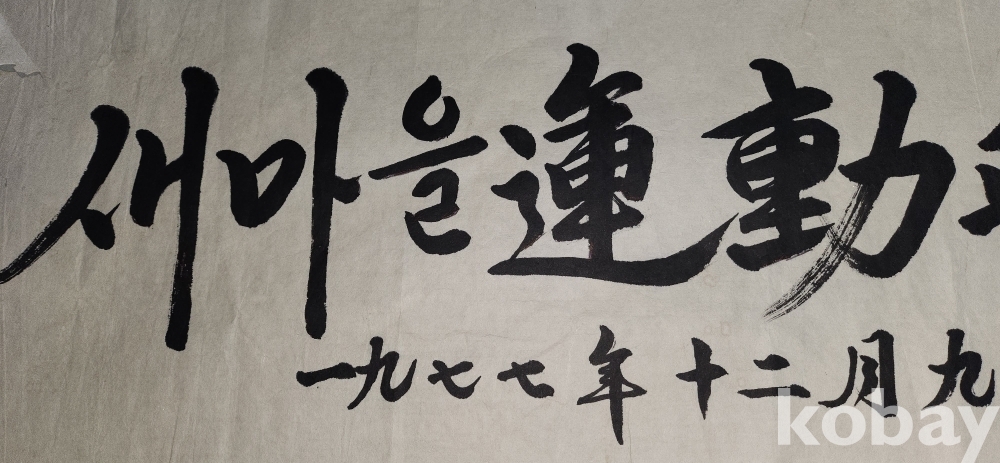 새마을運動
一九七七年 十二月 九
kobay